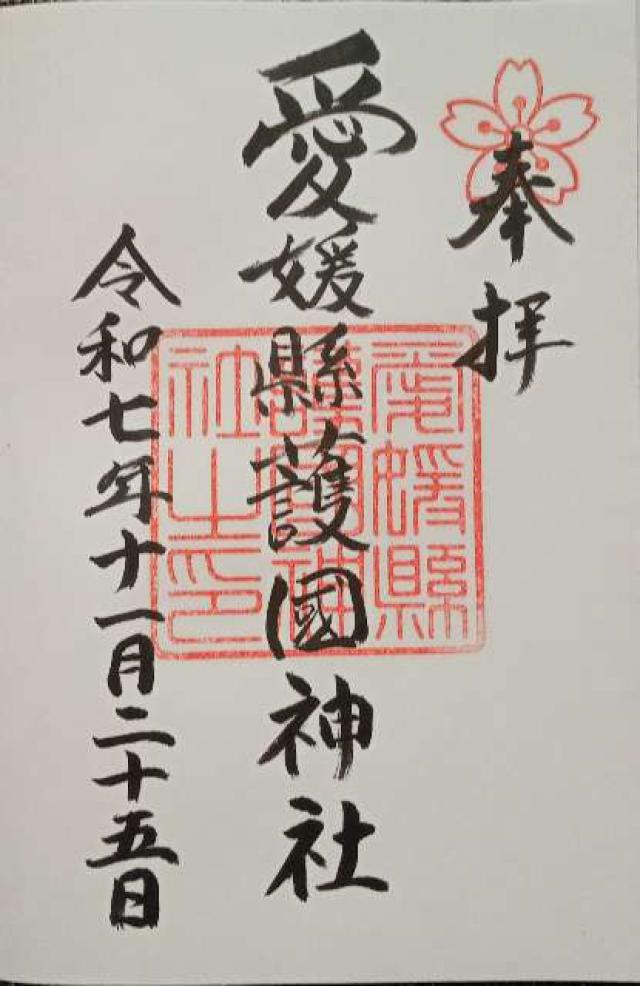 奉拝
愛媛縣護國神社
愛媛縣
護國神
社之印
令和七年十一月二十五日